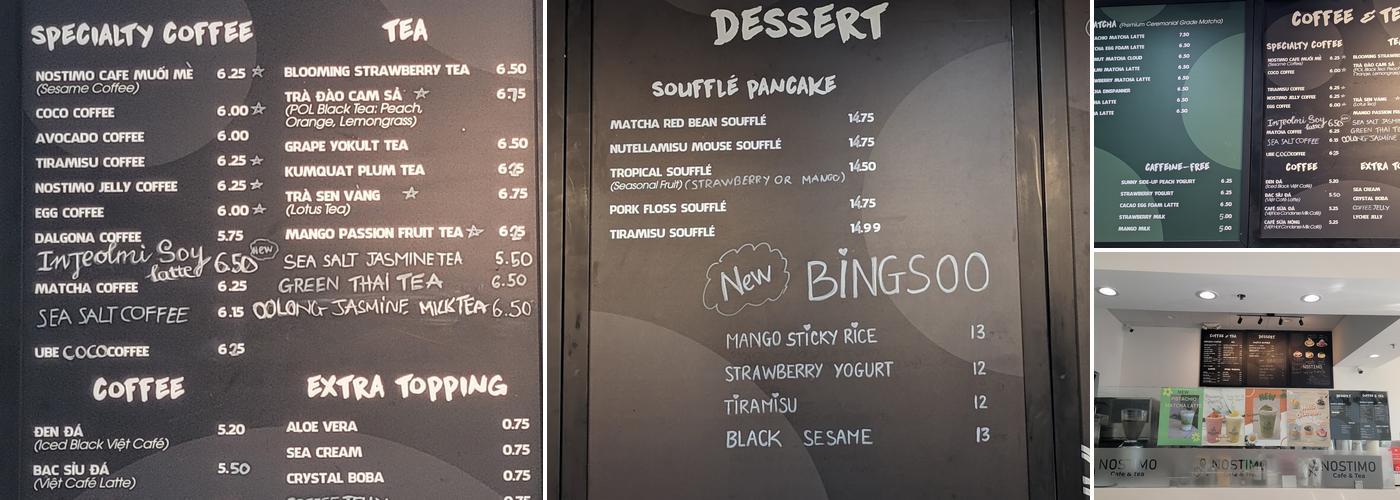 SPECIALTY COFFEE
NOSTIMO CAFE MUỐI MÈ 6.25
(Sesame Coffee)
COCO COFFEE 6.00
AVOCADO COFFEE 6.00
TIRAMISU COFFEE 6.25
NOSTIMO JELLY COFFEE 6.25
EGG COFFEE 6.00
DALGONA COFFEE 5.75
Injeolmi Soy latte 6.50 New
MATCHA COFFEE 6.25
SEA SALT COFFEE 6.15
UBE COCO COFFEE 6.25
COFFEE
ĐEN ĐÁ 5.20
(Iced Black Việt Café)
BẠC SỈU ĐÁ 5.50
(Việt Café Latte)
TEA
BLOOMING STRAWBERRY TEA 6.50
TRÀ ĐÀO CAM SẢ 6.75
(POL Black Tea: Peach,
Orange, Lemongrass)
GRAPE YOKULT TEA 6.50
KUMQUAT PLUM TEA 6.25
TRÀ SEN VÀNG 6.75
(Lotus Tea)
MANGO PASSION FRUIT TEA 6.25
SEA SALT JASMINE TEA 5.50
GREEN THAI TEA 6.50
OOLONG JASMINE MILKTEA 6.50
EXTRA TOPPING
ALOE VERA 0.75
SEA CREAM 0.75
CRYSTAL BOBA 0.75
DESSERT
SOUFFLÉ PANCAKE
MATCHA RED BEAN SOUFFLÉ 14.75
NUTELLAMISU MOUSE SOUFFLÉ 14.75
TROPICAL SOUFFLÉ 14.50
(Seasonal Fruit) (STRAWBERRY OR MANGO)
PORK FLOSS SOUFFLÉ 14.75
TIRAMISU SOUFFLÉ 14.99
New BINGSOO
MANGO STICKY RICE 13
STRAWBERRY YOGURT 12
TIRAMISU 12
BLACK SESAME 13
(Premium Ceremonial Grade Matcha)
MATCHA LATTE 7.50
EGG FOAM LATTE 6.50
MATCHA CLOUD 6.50
MATCHA LATTE 6.50
MATCHA LATTE 6.50
EINSPANNER 6.50
LATTE 6.50
CAFFEINE-FREE
SUNNY SIDE-UP PEACH YOGURT 6.25
STRAWBERRY YOGURT 6.25
CACAO EGG FOAM LATTE 6.50
STRAWBERRY MILK 5.00
MANGO MILK 5.00
COFFEE & TE
SPECIALTY COFFEE
COCO COFFEE
TIRAMISU COFFEE
NOSTIMO JELLY COFFEE
EGG COFFEE
Injeolmi Soy latte 6.50
MATCHA COFFEE
SEA SALT COFFEE
UBE COCOCOFFEE
COFFEE
ĐEN ĐÁ 5.20
(Iced Black Việt Café)
BẠC SỈU ĐÁ 5.50
(Việt Café Latte)
CAFÉ SỮA ĐÁ 5.25
CAFÉ SỮA NÓNG 5.25
EXTRA TO
SEA CREAM
CRYSTAL BOBA
COFFEE JELLY
LYCHEE JELLY
COFFEE & TEA
DESSERT
NOSTIMO
NEW
PISTACHIO
MATCHA LATTE
DESSERT
COFFEE & TEA
NOSTIMO
Cafe & Tea
NOSTIMO
Cafe & Tea
NOSTIMO
Cafe & Tea